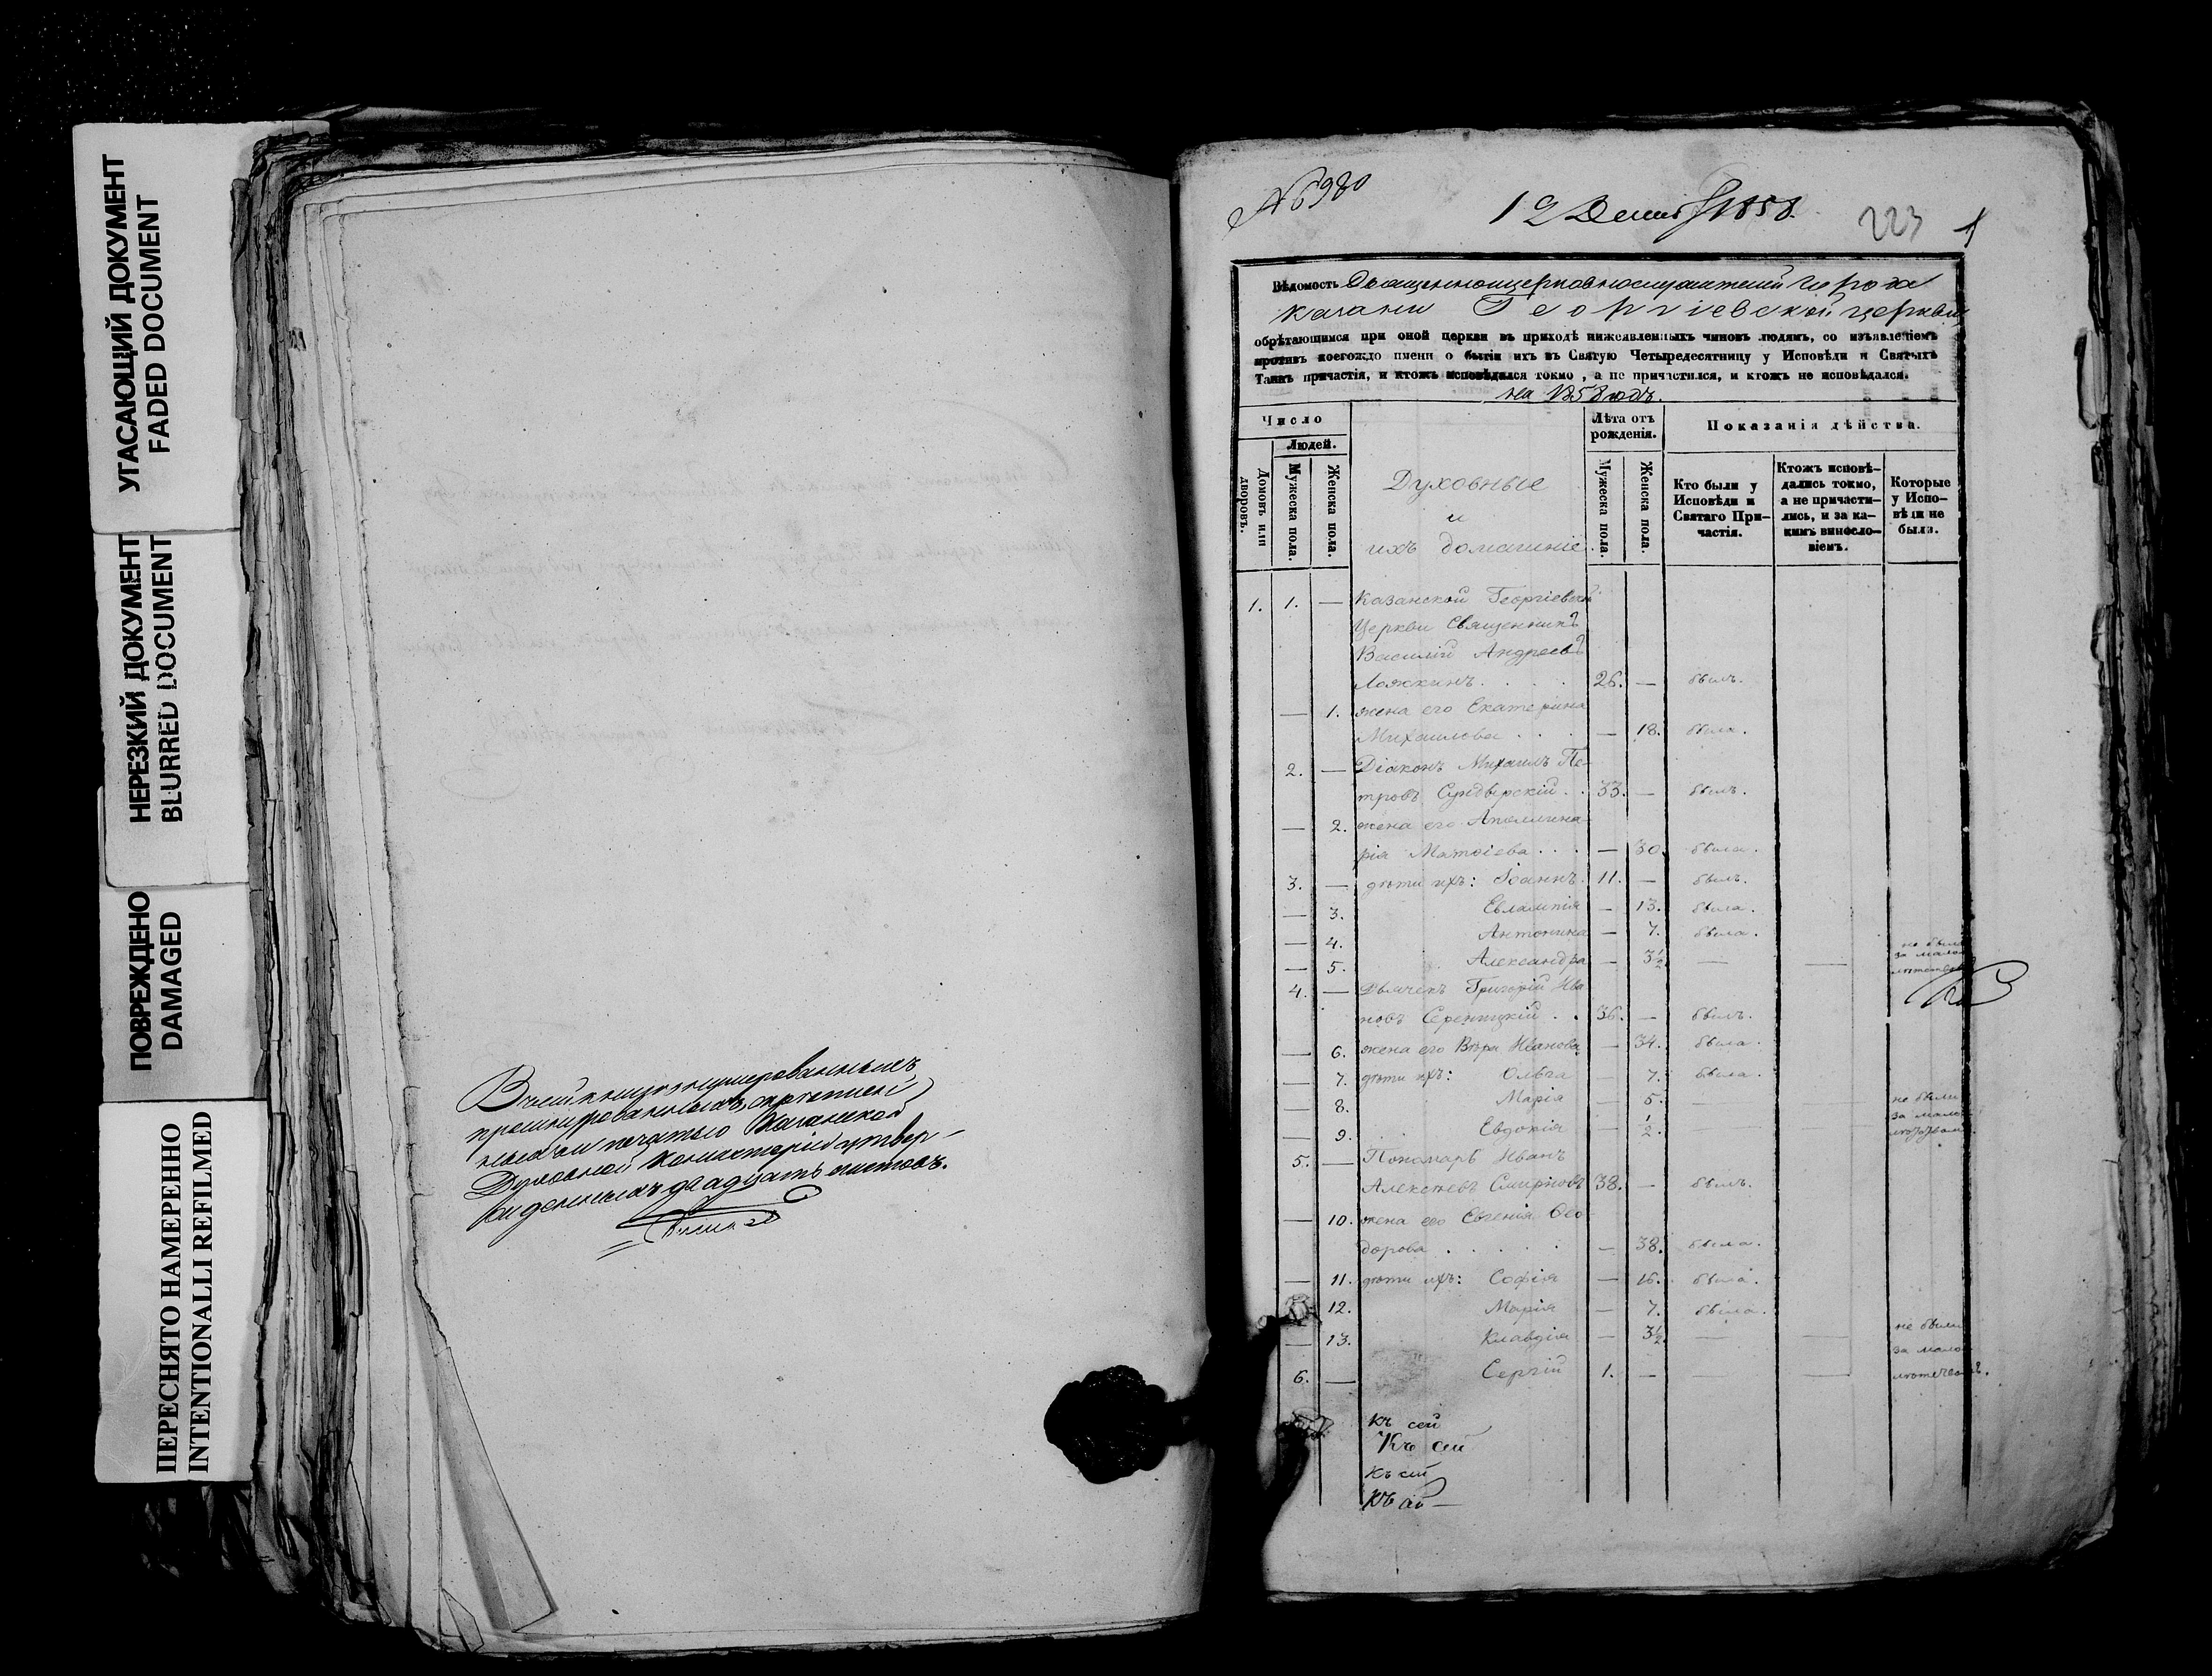 УГАСАЮЩИЙ ДОКУМЕНТ
FADED DOCUMENT
НЕРЕЗКИЙ ДОКУМЕНТ
BLURRED DOCUMENT
ПОВРЕЖДЕНО
DAMAGED
ПЕРЕСНЯТО НАМЕРЕННО
INTENTIONALLI REFILMED
Духовной Консисторіи утвер-
жденныхъ двадцать листовъ.
№ 6980
12 1858.
223
1
Вѣдомость Священноцерковнослужителей города
Казани Георгіевской церкви
обрѣтающимся при оной церкви въ приходѣ нижеявленныхъ чиновъ людямъ, со изъявленіемъ
противъ коегождо имени о бытіи ихъ въ Святую Четыредесятницу у Исповѣди и Святыхъ
Таинъ причастія, и ктожъ исповѣдался токмо, а не причастился, и ктожъ не исповѣдался.
на 1858 годъ.
Число
Людей.
Домовъ или дворовъ.
Мужеска пола.
Женска пола.
Духовные
и
ихъ домашніе.
Лѣта отъ рожденія.
Мужеска пола.
Женска пола.
Показанія дѣйства.
Кто были у Исповѣди и Святаго Причастія.
Ктожъ исповѣдались токмо, а не причастились, и за какимъ винословіемъ.
Которые у Исповѣди не были.
1. 1. — Казанской Георгіевской
Церкви Священникъ
Василій Андреевъ
Ложкинъ . . . . 26. — былъ.
— 1. жена его Екатерина
Михаилова . . . — 18. была.
2. — Діаконъ Михаилъ Пе-
тровъ Сундырскій . . 33. — былъ.
— 2. жена его Аполлина-
рія Матѳіева . . . — 30. была.
3. — дѣти ихъ: Іоаннъ. 11. — былъ.
— 3. Евлампія — 13. была.
— 4. Антонина — 7. была.
— 5. Александра — 3½ — — не была
за мало-
лѣтство
4. — Дьячекъ Григорій Ива-
новъ Серенцкій . . 36. — былъ.
— 6. жена его Вѣра Иванова — 34. была.
— 7. дѣти ихъ: Ольга — 7. была.
— 8. Марія — 5. — — не были
— 9. Евдокія — ½. — — за мало-
5. — Пономарь Иванъ
Алексѣевъ Смирновъ 38. — былъ.
— 10. жена его Евгенія Ѳео-
дорова . . . . . — 38. была.
— 11. дѣти ихъ: Софія — 16. была.
12. Марія — 7. была.
— 13. Клавдія — 3½ — — не были
за мало-
6. — Сергій 1. — — — лѣтствомъ.
Къ сей
Къ сей
Къ сей
Къ сей